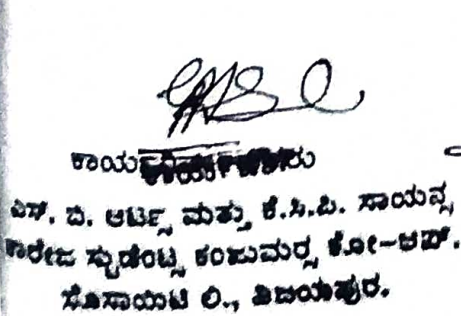 ಎಸ್. ಬಿ. ಆರ್ಟ್ಸ ಮತ್ತು ಕೆ.ಸಿ.ಪಿ. ಸಾಯನ್ಸ
ಕಾಲೇಜ ಸ್ಟುಡೆಂಟ್ಸ ಕಂಜುಮರ್‍ಸ ಕೋ-ಆಪ್.
ಸೊಸಾಯಿಟಿ ಲಿ., ವಿಜಯಾಪುರ.